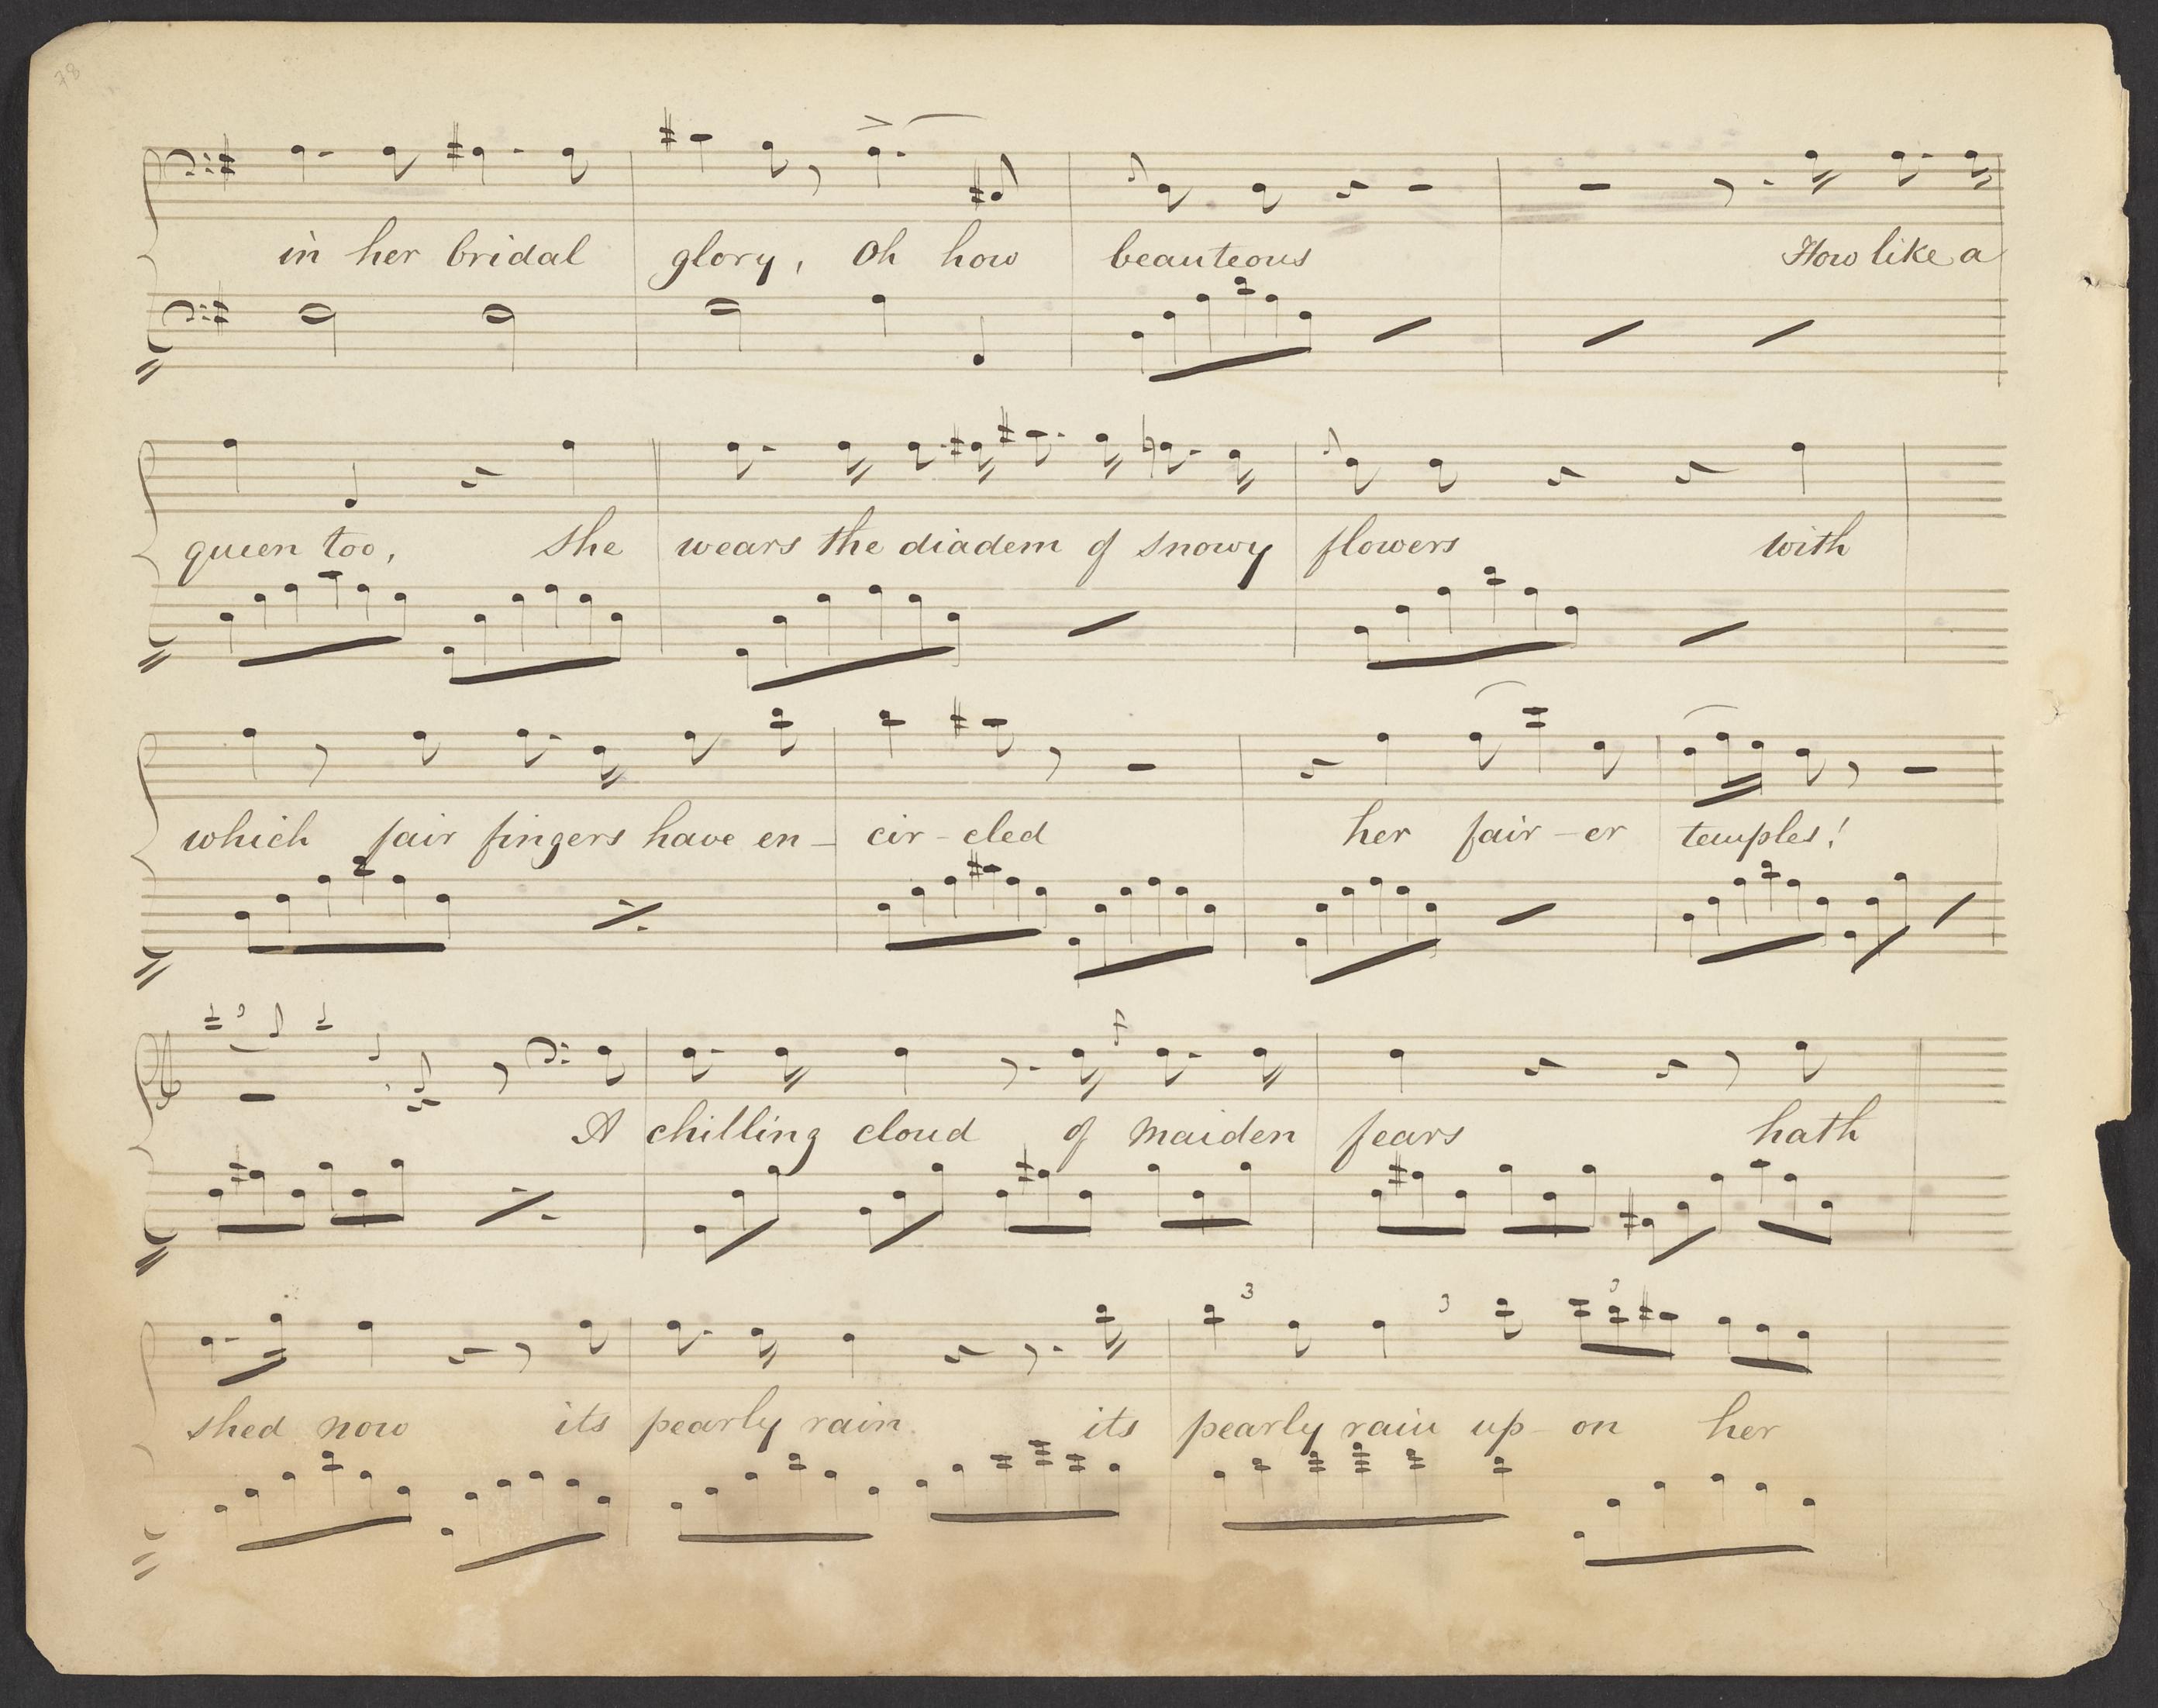 78
in her bridal glory, Oh how beauteous How like a
queen too, she wears the diadem of snowy flowers with
which fair fingers have en- cir-cled her fair-er temples!
3
A chilling cloud of maiden fears hath
3 3 3
shed now its pearly rain its pearly rain up-on her